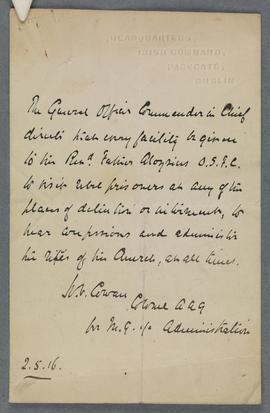 HEADQUARTERS,
IRISH COMMAND,
PARKGATE,
DUBLIN
The General Officer Commander in Chief
directs that every facility be given
to the Rev.d Father Aloysius O.S.F.C.
to visit rebel prisoners at any of the
places of detention or internment, to
hear confessions and administer
the rites of his Church, at all times.
H.V. Cowan
Colonel A A G
for M. G. i/c Administration
2.5.16.